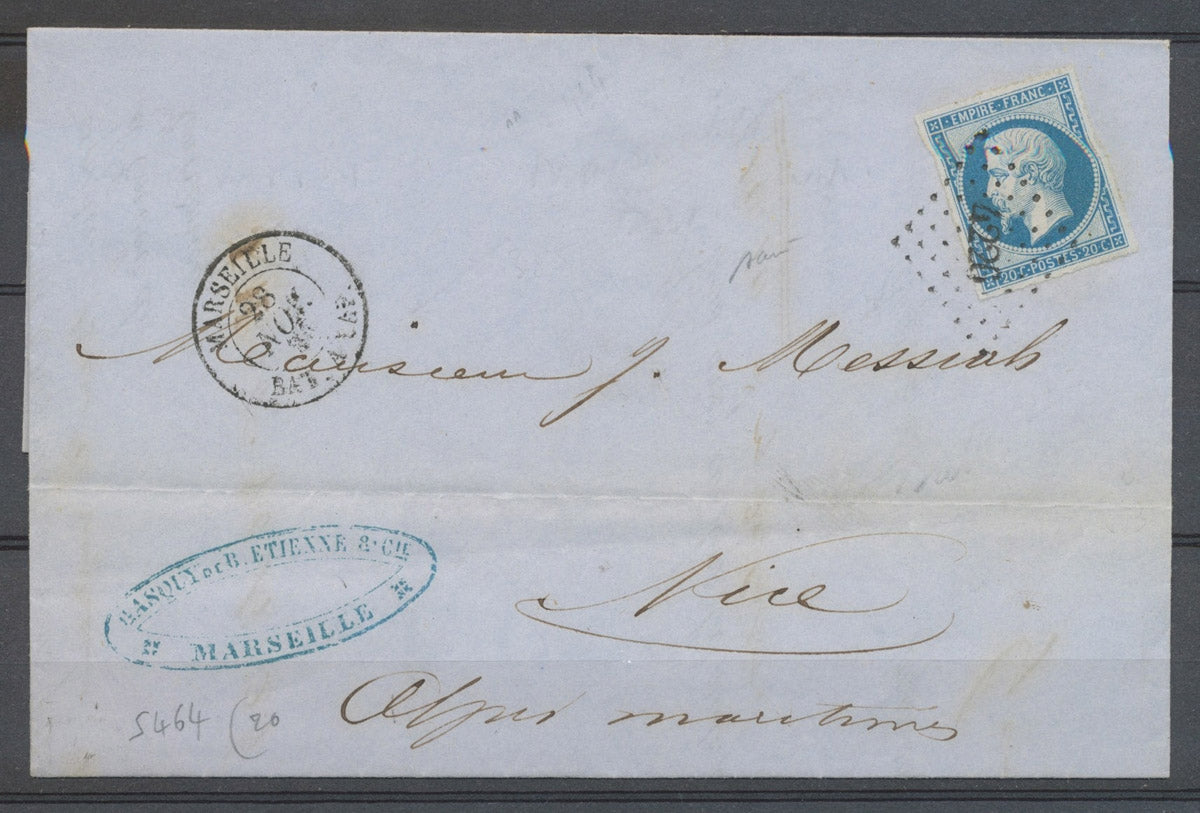 EMPIRE·FRANC·
20·C·POSTES·20·C
MARSEILLE
28
NOV.
Monsieur J. Messiah
B. ETIENNE & Cie
MARSEILLE
Nice
Alpes maritimes
5464 (20